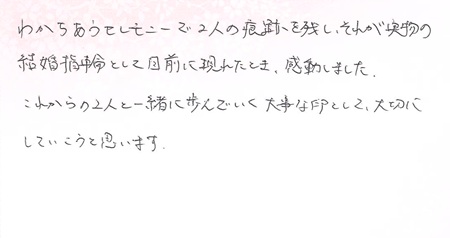 わかちあうセレモニーで2人の痕跡を残し、それが実物の
結婚指輪として目前に現れたとき、感動しました。
これからの2人と一緒に歩んでいく大事な印として、大切に
していこうと思います。